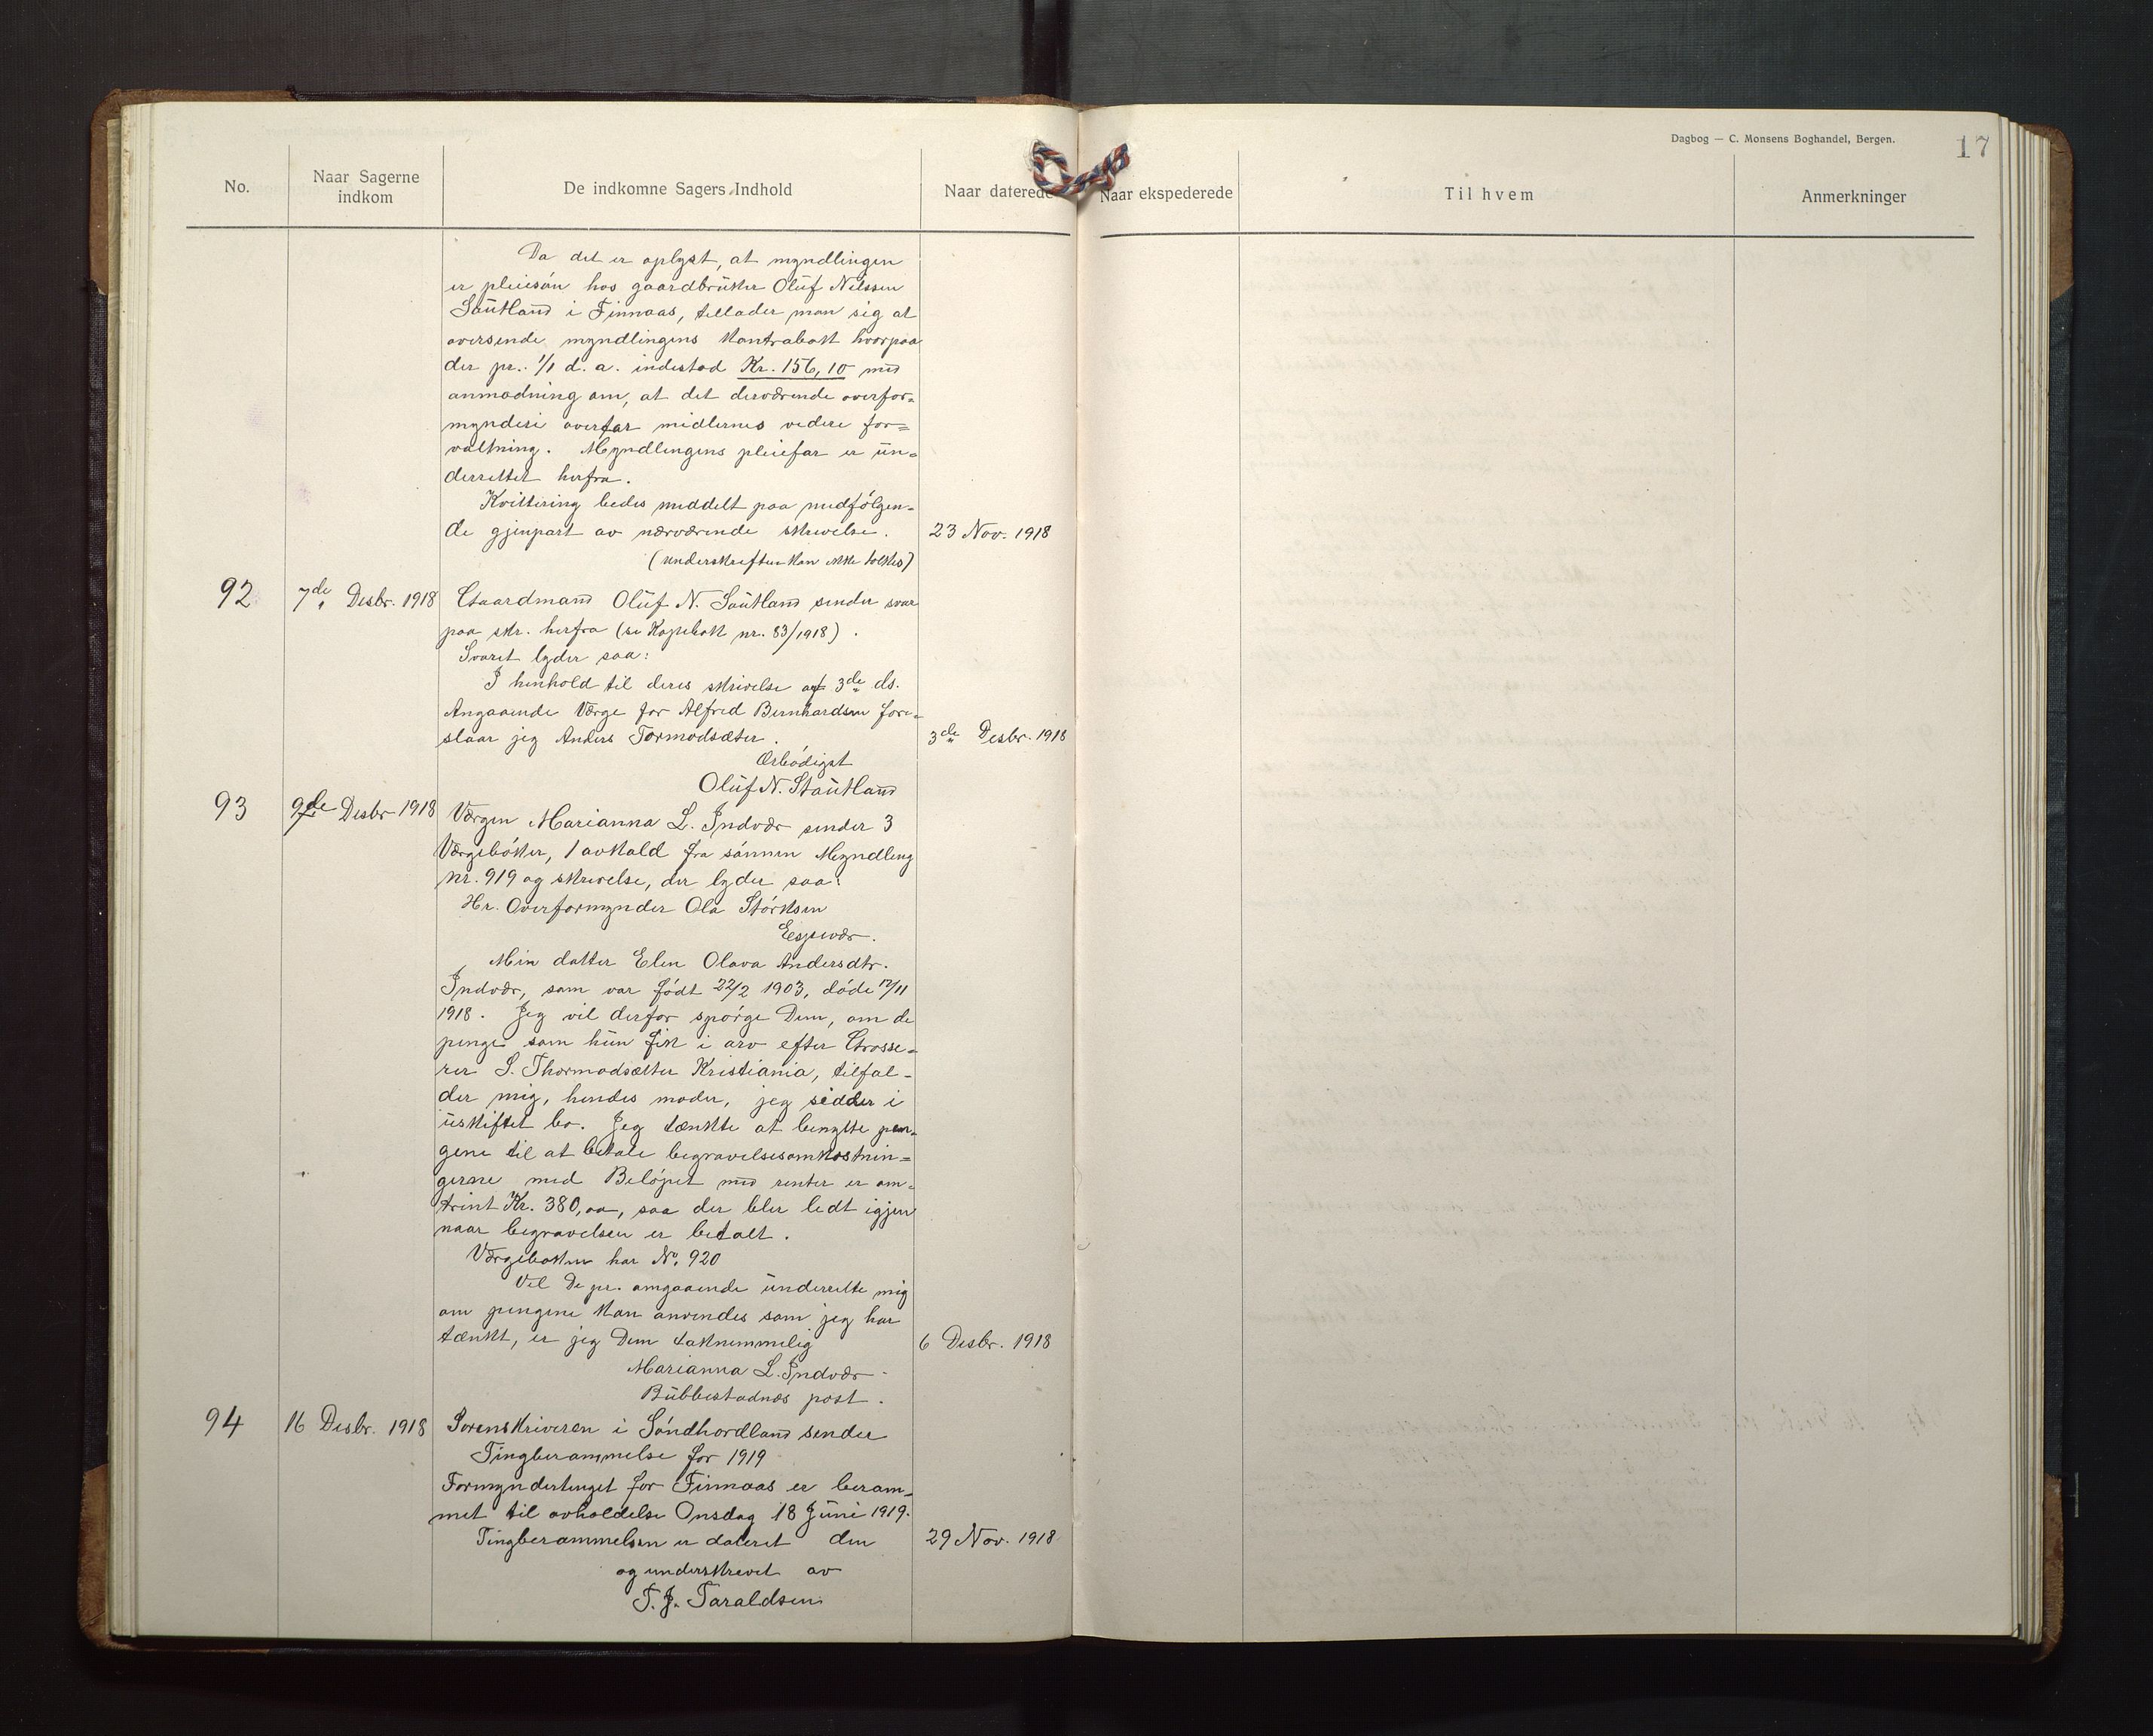 Dagbog — C. Monsens Boghandel, Bergen.
17
No.
Naar Sagerne
indkom
De indkomne Sagers Indhold
Naar daterede
Naar ekspederede
Til hvem
Anmerkninger
Da det er oplyst, at myndlingen
er pleiesön hos gaardbruker Oluf Nilssen
Sautland i Finnaas, tillader man sig at
oversende myndlingens Kontrabok hvorpaa
der pr. 1/1 d. a. indestod Kr. 156,10 med
anmodning om, at det derværende overfor=
mynderi overtar midlernes videre for=
valtning. Myndlingens pleiefar er un=
derrettet herfra.
Kvittering bedes meddelt paa medfölgen=
de gjenpart av nærværende skrivelse.
23 Nov. 1918
(underskriften kan ikke tolkes)
92
7de Desbr. 1918
Gaardmand Oluf N. Sautland sender svar
paa skr. herfra (se Kopibok nr. 83/1918).
Svaret lyder saa:
I henhold til deres skrivelse af 3de ds.
Angaaende Værge for Alfred Bernhardsen fore=
slaar jeg Anders Tormodsæter.
3de Desbr. 1918
Ærbödigst
Oluf N. Stautland
93
9de Desbr 1918
Værgen Marianna L. Indvær sender 3
Værgeböker, 1 avkald fra sönnen Myndling
nr. 919 og skrivelse, der lyder saa:
Hr. Overformynder Ola Störksen
Espevær.
Min datter Elen Olava Andersdtr.
Indvær, som var födt 22/2 1903, döde 17/11
1918. Jeg vil derfor spörge Dem, om de
penge som hun fik i arv efter Grosse=
rer S. Thormodsætter Kristiania, tilfal=
der mig, hendes moder, jeg sidder i
uskiftet bo. Jeg tænkte at benytte pen=
gene til at betale begravelsesomkostnin=
gerne med Belöpet med renter er om=
trint Kr. 380,oo, saa der blir lidt igjen
naar begravelsen er betalt.
Værgeboken har No. 920
Vil De pr. omgaaende underrette mig
om pengene kan anvendes som jeg har
tænkt, er jeg Dem taknemmelig
6 Desbr. 1918
Marianna L. Indvær
Bubbestadnes post.
94
16 Desbr. 1918
Sorenskriveren i Söndhordland sender
Tingberammelse for 1919
Formyndertinget for Finnaas er beram=
met til avholdelse Onsdag 18 Juni 1919.
Tingberammelsen er dateret den
29 Nov. 1918
og underskrevet av
T. J. Taraldsen